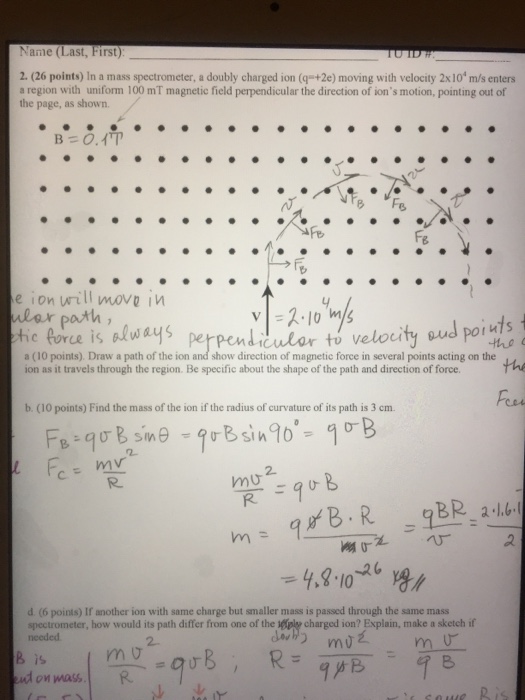 Name (Last, First):
TU ID #:
2. (26 points) In a mass spectrometer, a doubly charged ion (q=+2e) moving with velocity 2x10⁴ m/s enters
a region with uniform 100 mT magnetic field perpendicular the direction of ion's motion, pointing out of
the page, as shown.
B = 0.1T
v
F_B
v
F_B
v
F_B
v
F_B
F_B
ion will move in
path,
v = 2·10⁴ m/s
force is always perpendicular to velocity and points
the
a (10 points). Draw a path of the ion and show direction of magnetic force in several points acting on the
ion as it travels through the region. Be specific about the shape of the path and direction of force.
b. (10 points) Find the mass of the ion if the radius of curvature of its path is 3 cm.
F_B = qvB sinθ = qvB sin90° = qvB
F_C = mv²/R
mv²/R = qvB
m = qvB·R/v² = qBR/v =
= 4,8·10⁻²⁶ kg
d. (6 points) If another ion with same charge but smaller mass is passed through the same mass
spectrometer, how would its path differ from one of the doubly charged ion? Explain, make a sketch if
needed.
B is
on mass.
mv²/R = qvB, R = mv²/qvB = mv/qB
R is